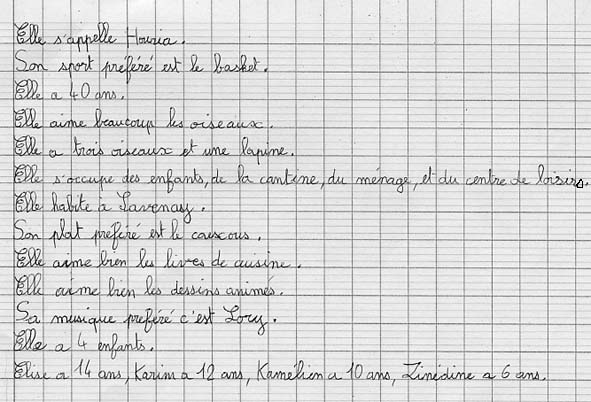 Elle s'appelle Houria.
Son sport préféré est le basket.
Elle a 40 ans.
Elle aime beaucoup les oiseaux.
Elle a trois oiseaux et une lapine.
Elle s'occupe des enfants, de la cantine, du ménage, et du centre de loisirs.
Elle habite à Lavenay.
Son plat préféré est le couscous.
Elle aime bien les livres de cuisine.
Elle aime bien les dessins animés.
Sa musique préféré c'est Lory.
Elle a 4 enfants.
Elise a 14 ans, Karim a 12 ans, Kamélion a 10 ans, Zinédine a 6 ans.